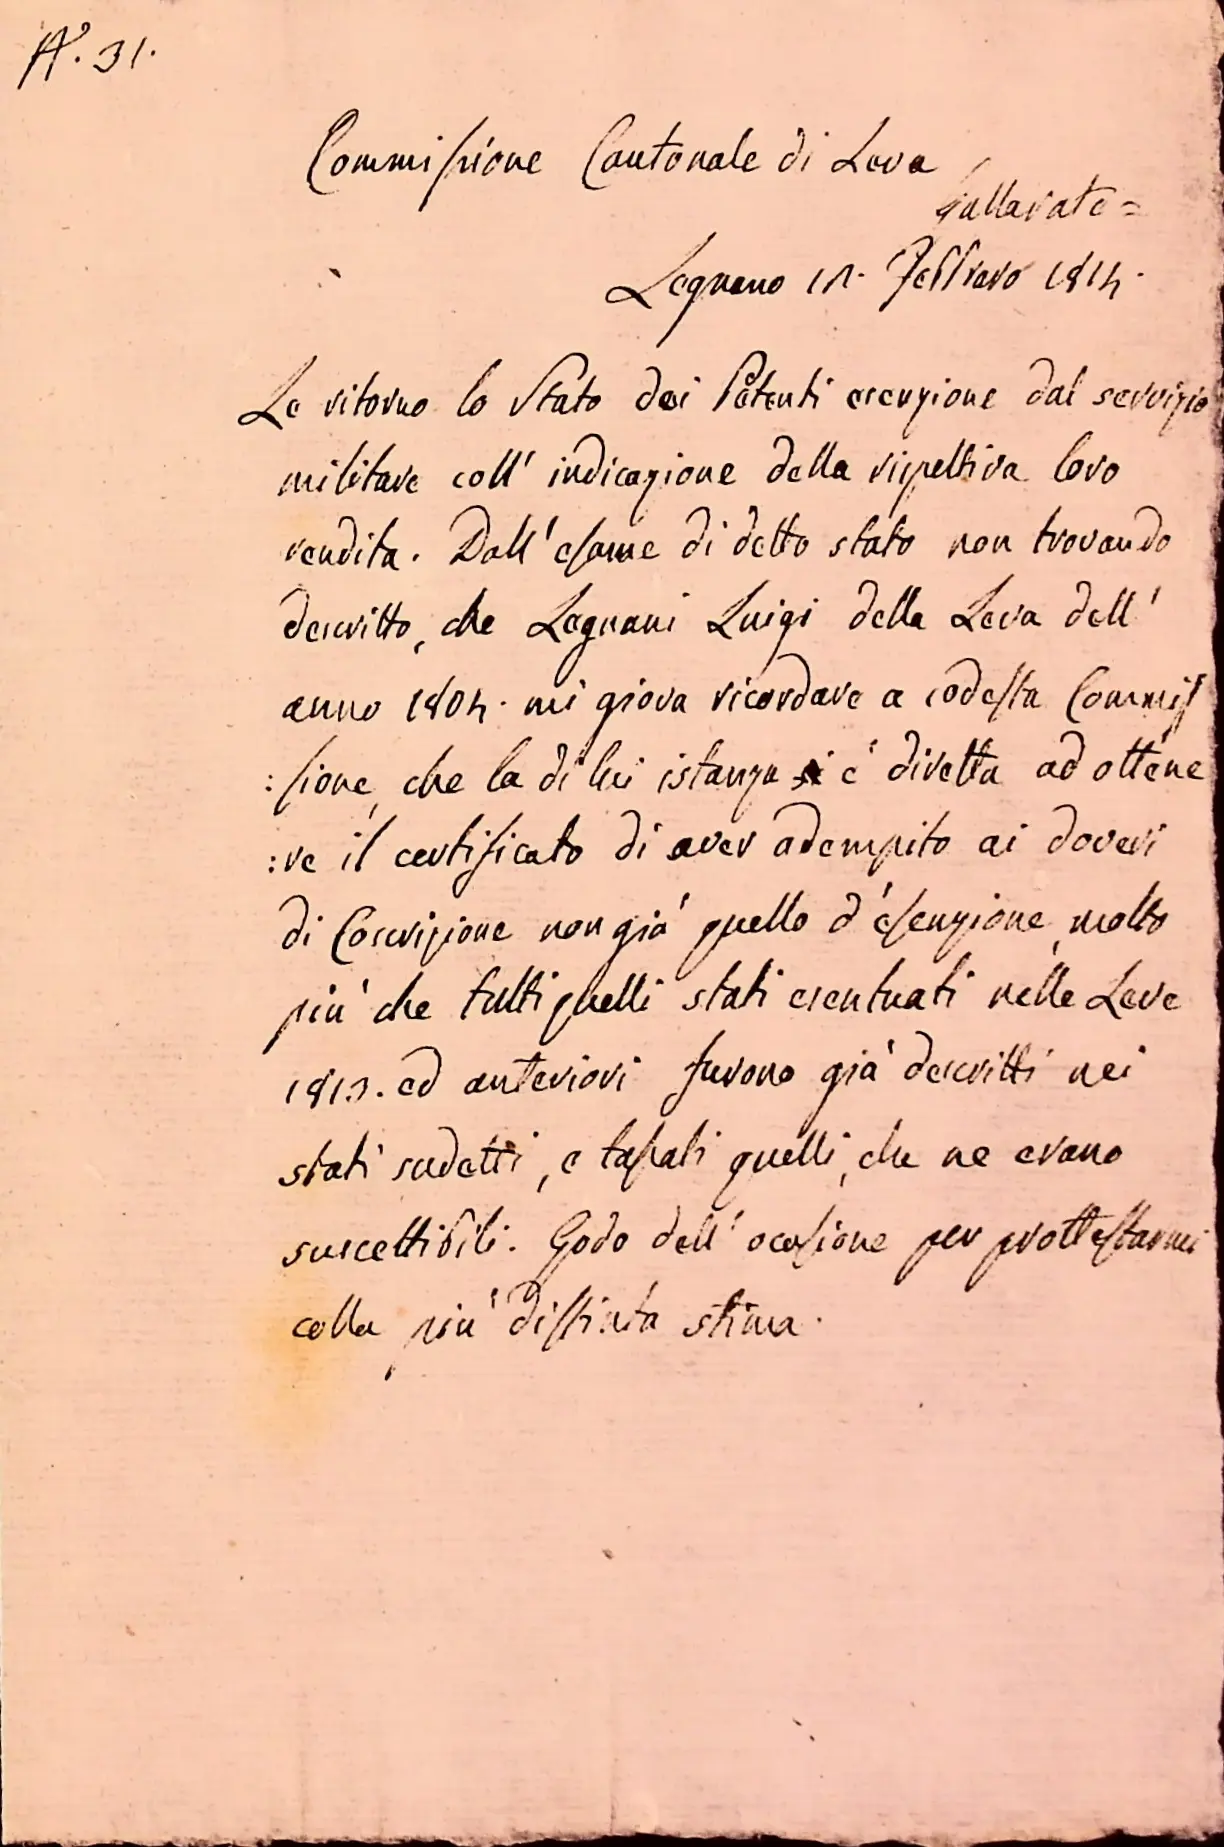 N.° 31.
Commissione Cantonale di Leva
Gallarate =
Legnano Febbraro 1814.
Le ritorno lo Stato dei Petenti esenzione dal servizio
militare coll' indicazione della rispettiva loro
rendita. Dall' esame di detto stato non trovando
descritto, che Legnani Luigi della Leva dell'
anno 1804. mi giova ricordare a codesta Commis
:sione, che la di lui istanza è diretta ad ottene
:re il certificato di aver adempito ai doveri
di Coscrizione non già quello d'esenzione, molto
più che tutti quelli stati esentuati nelle Leve
1813. ed anteriori furono già descritti nei
stati sudetti, e tassati quelli, che ne erano
suscettibili. Godo dell' ocasione per prottestarmi
colla più distinta stima.